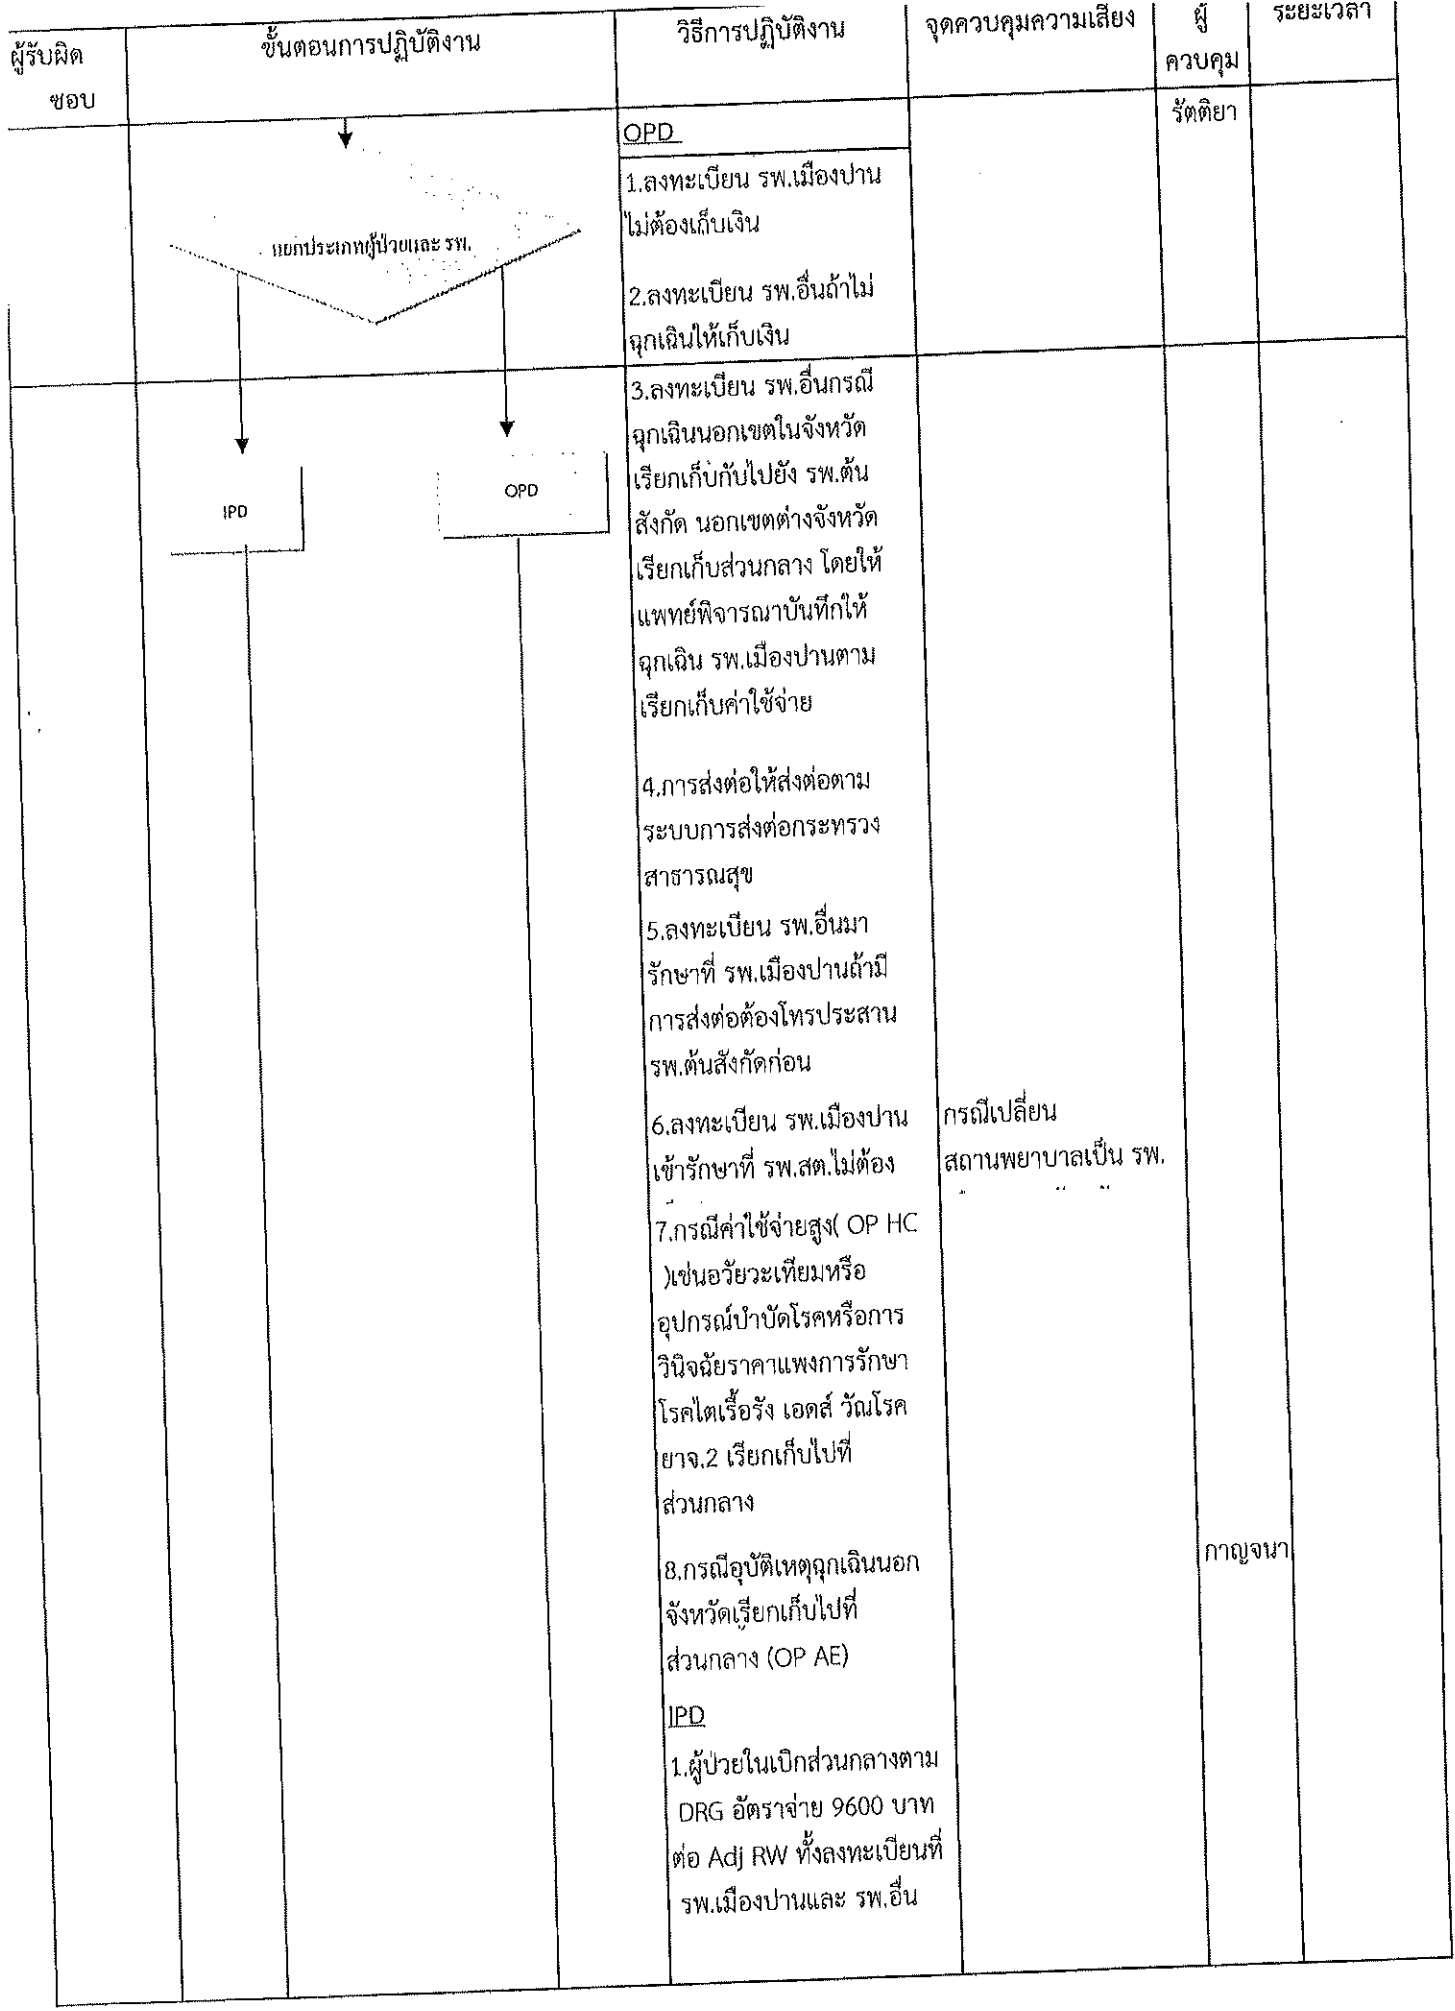 ผู้รับผิด
ชอบ
ขั้นตอนการปฏิบัติงาน
วิธีการปฏิบัติงาน
จุดควบคุมความเสี่ยง
ผู้
ควบคุม
ระยะเวลา
แยกประเภทผู้ป่วยและ รพ.
IPD
OPD
OPD
1.ลงทะเบียน รพ.เมืองปาน
ไม่ต้องเก็บเงิน
2.ลงทะเบียน รพ.อื่นถ้าไม่
ฉุกเฉินให้เก็บเงิน
รัตติยา
3.ลงทะเบียน รพ.อื่นกรณี
ฉุกเฉินนอกเขตในจังหวัด
เรียกเก็บกับไปยัง รพ.ต้น
สังกัด นอกเขตต่างจังหวัด
เรียกเก็บส่วนกลาง โดยให้
แพทย์พิจารณาบันทึกให้
ฉุกเฉิน รพ.เมืองปานตาม
เรียกเก็บค่าใช้จ่าย
4.การส่งต่อให้ส่งต่อตาม
ระบบการส่งต่อกระทรวง
สาธารณสุข
5.ลงทะเบียน รพ.อื่นมา
รักษาที่ รพ.เมืองปานถ้ามี
การส่งต่อต้องโทรประสาน
รพ.ต้นสังกัดก่อน
6.ลงทะเบียน รพ.เมืองปาน
เข้ารักษาที่ รพ.สต.ไม่ต้อง
กรณีเปลี่ยน
สถานพยาบาลเป็น รพ.
7.กรณีค่าใช้จ่ายสูง( OP HC
)เช่นอวัยวะเทียมหรือ
อุปกรณ์บำบัดโรคหรือการ
วินิจฉัยราคาแพงการรักษา
โรคไตเรื้อรัง เอดส์ วัณโรค
ยาจ.2 เรียกเก็บไปที่
ส่วนกลาง
8.กรณีอุบัติเหตุฉุกเฉินนอก
จังหวัดเรียกเก็บไปที่
ส่วนกลาง (OP AE)
กาญจนา
IPD
1.ผู้ป่วยในเบิกส่วนกลางตาม
DRG อัตราจ่าย 9600 บาท
ต่อ Adj RW ทั้งลงทะเบียนที่
รพ.เมืองปานและ รพ.อื่น